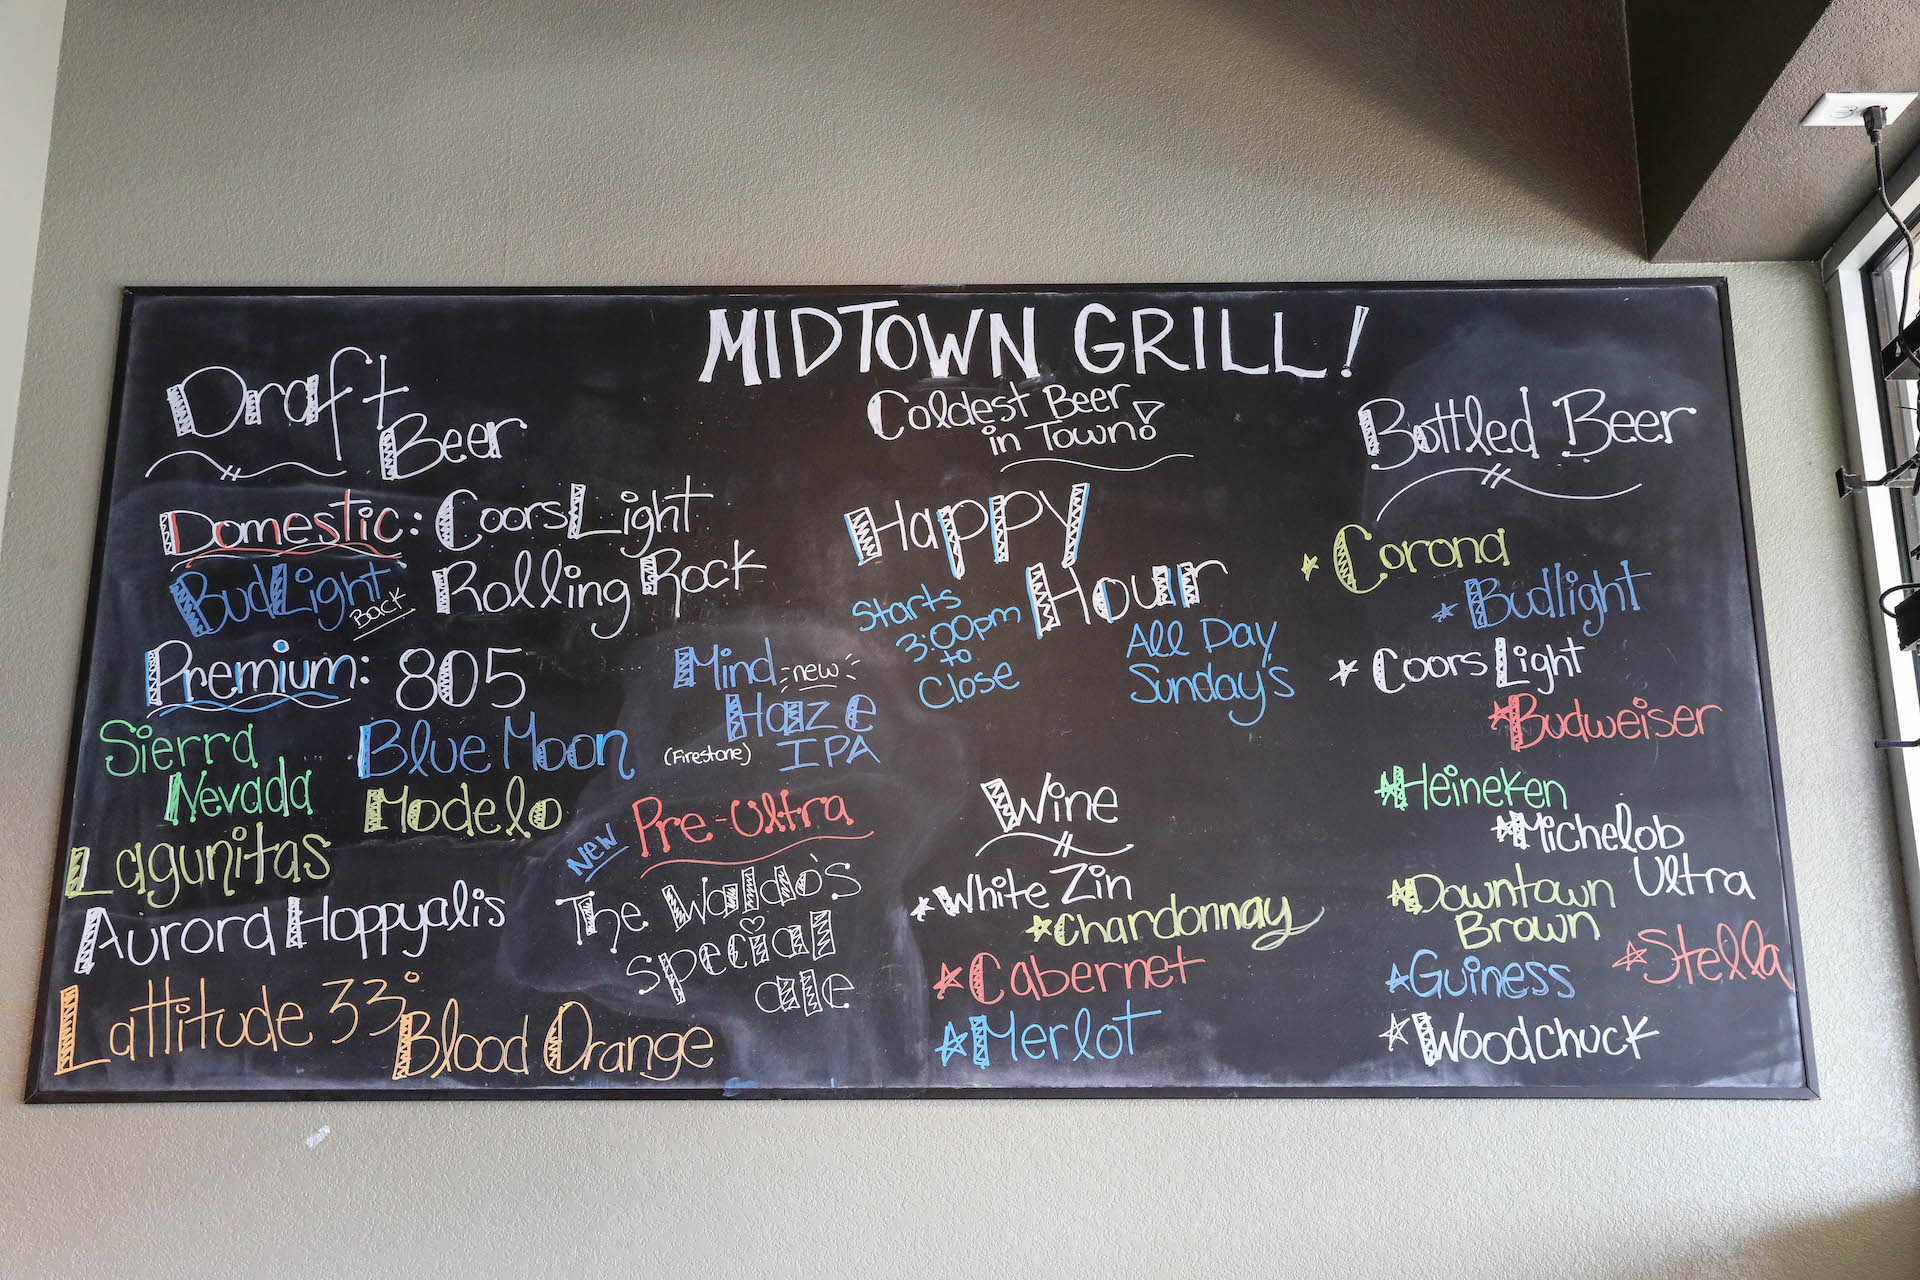 MIDTOWN GRILL!
Coldest Beer
in Town!
Draft
Beer
Domestic: Coors Light
BudLight Rolling Rock
Back
Premium: 805
Sierra
Nevada
Blue Moon
Modelo
Lagunitas
Aurora Hoppyalis
Lattitude 33°
Blood Orange
Mind new
Haze
(Firestone) IPA
NEW Pre-Ultra
The Waldo's
special
ale
Happy
Hour
Starts
3:00pm
to
Close
All Day
Sunday's
Wine
White Zin
Chardonnay
Cabernet
Merlot
Bottled Beer
Corona
Budlight
Coors Light
Budweiser
Heineken
Michelob
Ultra
Downtown
Brown
Stella
Guiness
Woodchuck